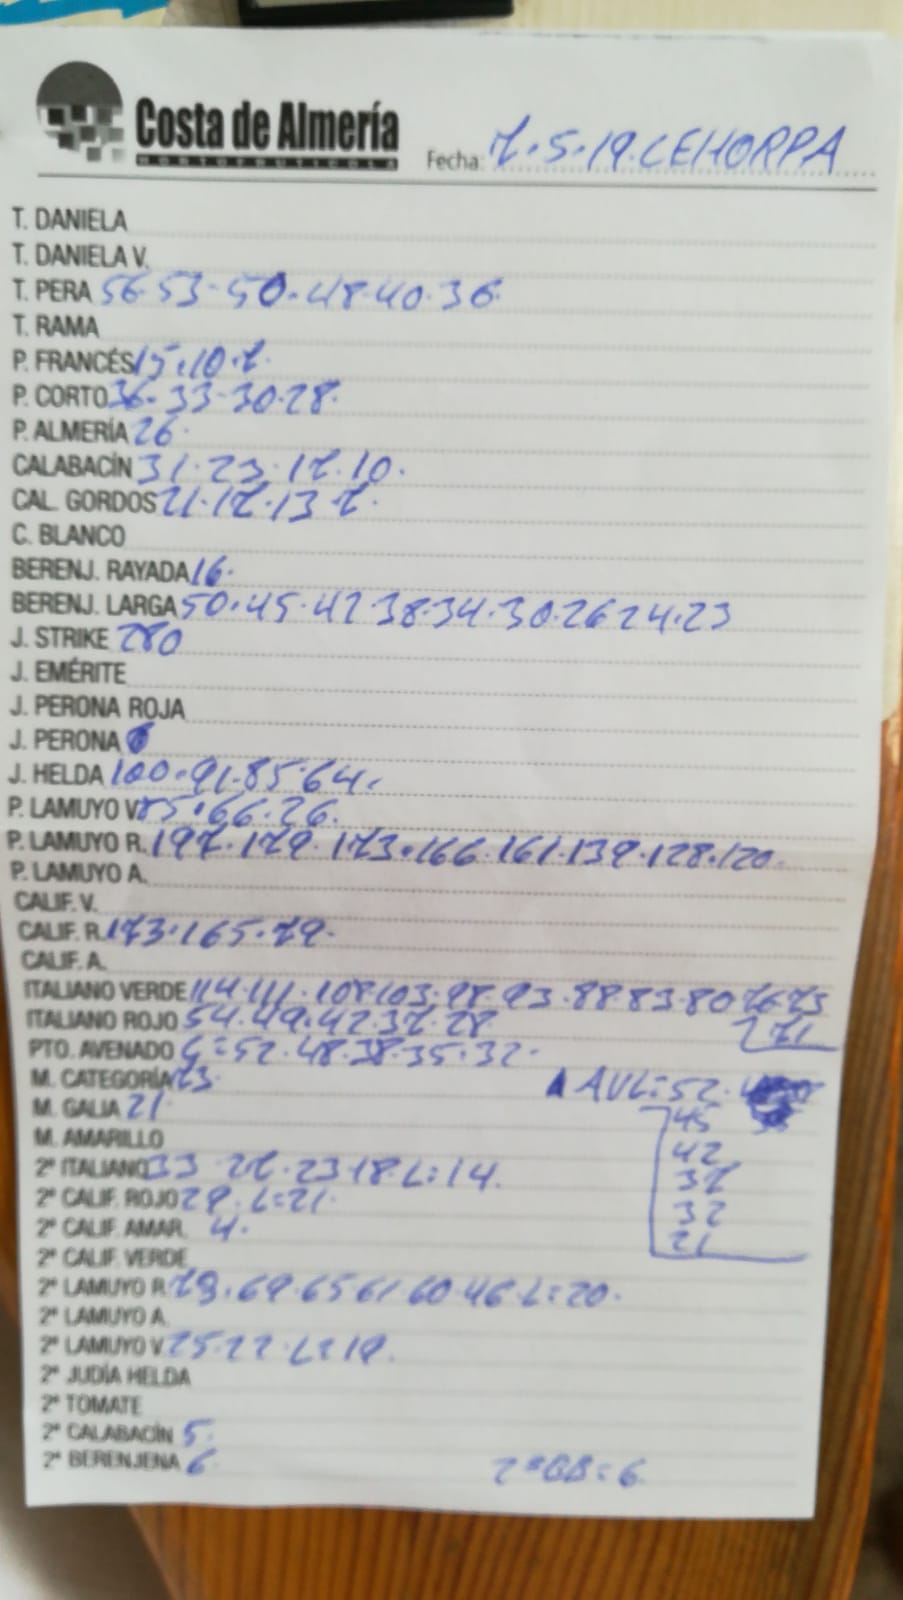 Costa de Almería
HORTOFRUTICOLA
Fecha: 7.5.19.CEHORPA
T. DANIELA
T. DANIELA V.
T. PERA 56.53.50.48.40.36.
T. RAMA
P. FRANCÉS 15.10.7.
P. CORTO 36.33.30.28.
P. ALMERÍA 26.
CALABACÍN 31.23.17.10.
CAL. GORDOS 21.17.13.7.
C. BLANCO
BERENJ. RAYADA 16.
BERENJ. LARGA 50.45.42.38.34.30.26.24.23
J. STRIKE 280
J. EMÉRITE
J. PERONA ROJA
J. PERONA
J. HELDA 100.91.85.64.
P. LAMUYO V. 85.66.26.
P. LAMUYO R. 197.179.173.166.161.139.128.120.
P. LAMUYO A.
CALIF. V.
CALIF. R. 173.165.79.
CALIF. A.
ITALIANO VERDE 114.111.108.103.98.93.88.83.80.76.73
71
ITALIANO ROJO 54.49.42.37.28
PTO. AVENADO G=52.48.38.35.32.
M. CATEGORÍA 23.
AVL=52.
45
42
37
32
21
M. GALIA 21.
M. AMARILLO
2ª ITALIANO 33.27.23.18.L=14.
2ª CALIF. ROJO 29.L=21.
2ª CALIF. AMAR. 4.
2ª CALIF. VERDE
2ª LAMUYO R. 79.69.65.61.60.46.L=20.
2ª LAMUYO A.
2ª LAMUYO V. 25.22.L=19.
2ª JUDÍA HELDA
2ª TOMATE
2ª CALABACÍN 5.
2ª BERENJENA 6. 2ªBB=6.